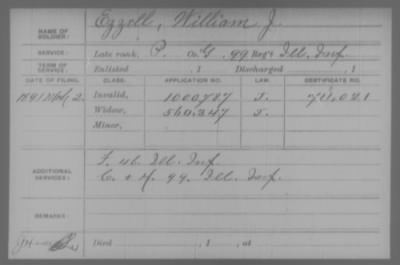 NAME OF SOLDIER: Ezzell, William J.
SERVICE: Late rank, P. Co. G, 99 Reg't Ill. Inf.
TERM OF SERVICE: Enlisted , 1 Discharged , 1
DATE OF FILING. CLASS. APPLICATION NO. LAW. CERTIFICATE NO.
1891 Mch 2. Invalid, 1000,787
Widow, 560,247
Minor,
ADDITIONAL SERVICES: F. 46 Ill. Inf.
C. & H. 99. Ill. Inf.
REMARKS:
Died , 1 , at